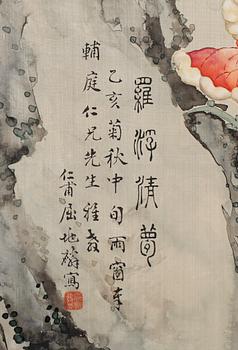 羅浮清夢
乙亥菊秋中旬雨窗奉
輔庭仁兄先生雅教
仁甫屈地寫